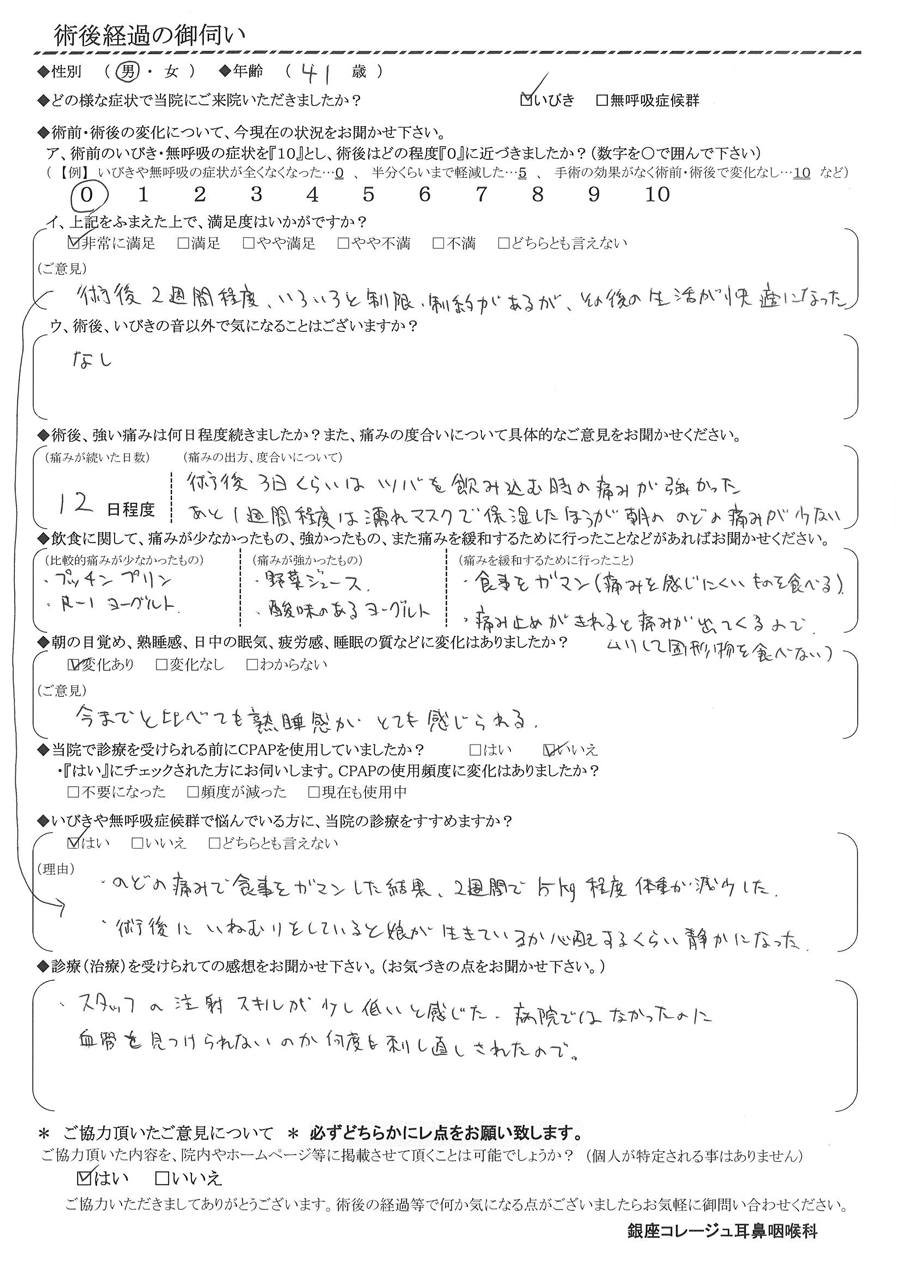 術後経過の御伺い
◆性別　（男・女）　◆年齢　（ 41 歳 ）
◆どの様な症状で当院にご来院いただきましたか？　☑いびき　□無呼吸症候群
◆術前・術後の変化について、今現在の状況をお聞かせ下さい。
ア、術前のいびき・無呼吸の症状を『10』とし、術後はどの程度『0』に近づきましたか？（数字を〇で囲んで下さい）
（【例】いびきや無呼吸の症状が全くなくなった…0 、 半分くらいまで軽減した…5 、 手術の効果がなく術前・術後で変化なし…10 など）
0 1 2 3 4 5 6 7 8 9 10
イ、上記をふまえた上で、満足度はいかがですか？
☑非常に満足　□満足　□やや満足　□やや不満　□不満　□どちらとも言えない
（ご意見）
術後2週間程度、いろいろと制限・制約があるが、その後の生活が快適になった
ウ、術後、いびきの音以外で気になることはございますか？
なし
◆術後、強い痛みは何日程度続きましたか？また、痛みの度合いについて具体的なご意見をお聞かせください。
（痛みが続いた日数）　（痛みの出方、度合いについて）
術後3日くらいはツバを飲み込む時の痛みが強かった
12 日程度
あと1週間程度は濡れマスクで保湿したほうが朝ののどの痛みが少ない
◆飲食に関して、痛みが少なかったもの、強かったもの、また痛みを緩和するために行ったことなどがあればお聞かせください。
（比較的痛みが少なかったもの）　（痛みが強かったもの）　（痛みを緩和するために行ったこと）
・プッチンプリン　・野菜ジュース　・食事をガマン（痛みを感じにくいものを食べる）
・R-1 ヨーグルト　・酸味のあるヨーグルト　・痛み止めがきれると痛みが出てくるので、
ムリして固形物を食べない）
◆朝の目覚め、熟睡感、日中の眠気、疲労感、睡眠の質などに変化はありましたか？
☑変化あり　□変化なし　□わからない
（ご意見）
今までと比べても熟睡感がとても感じられる。
◆当院で診療を受けられる前にCPAPを使用していましたか？　□はい　☑いいえ
・『はい』にチェックされた方にお伺いします。CPAPの使用頻度に変化はありましたか？
□不要になった　□頻度が減った　□現在も使用中
◆いびきや無呼吸症候群で悩んでいる方に、当院の診療をすすめますか？
☑はい　□いいえ　□どちらとも言えない
（理由）
・のどの痛みで食事をガマンした結果、2週間で5kg程度体重が減少した。
・術後にいねむりをしていると娘が生きているか心配するくらい静かになった。
◆診療（治療）を受けられての感想をお聞かせ下さい。（お気づきの点をお聞かせ下さい。）
・スタッフの注射スキルが少し低いと感じた。病院ではなかったのに
血管を見つけられないのか何度も刺し直しされたので。
＊ ご協力頂いたご意見について ＊ 必ずどちらかにレ点をお願い致します。
ご協力頂いた内容を、院内やホームページ等に掲載させて頂くことは可能でしょうか？（個人が特定される事はありません）
☑はい　□いいえ
ご協力いただきましてありがとうございます。術後の経過等で何か気になる点がございましたらお気軽に御問い合わせください。
銀座コレージュ耳鼻咽喉科